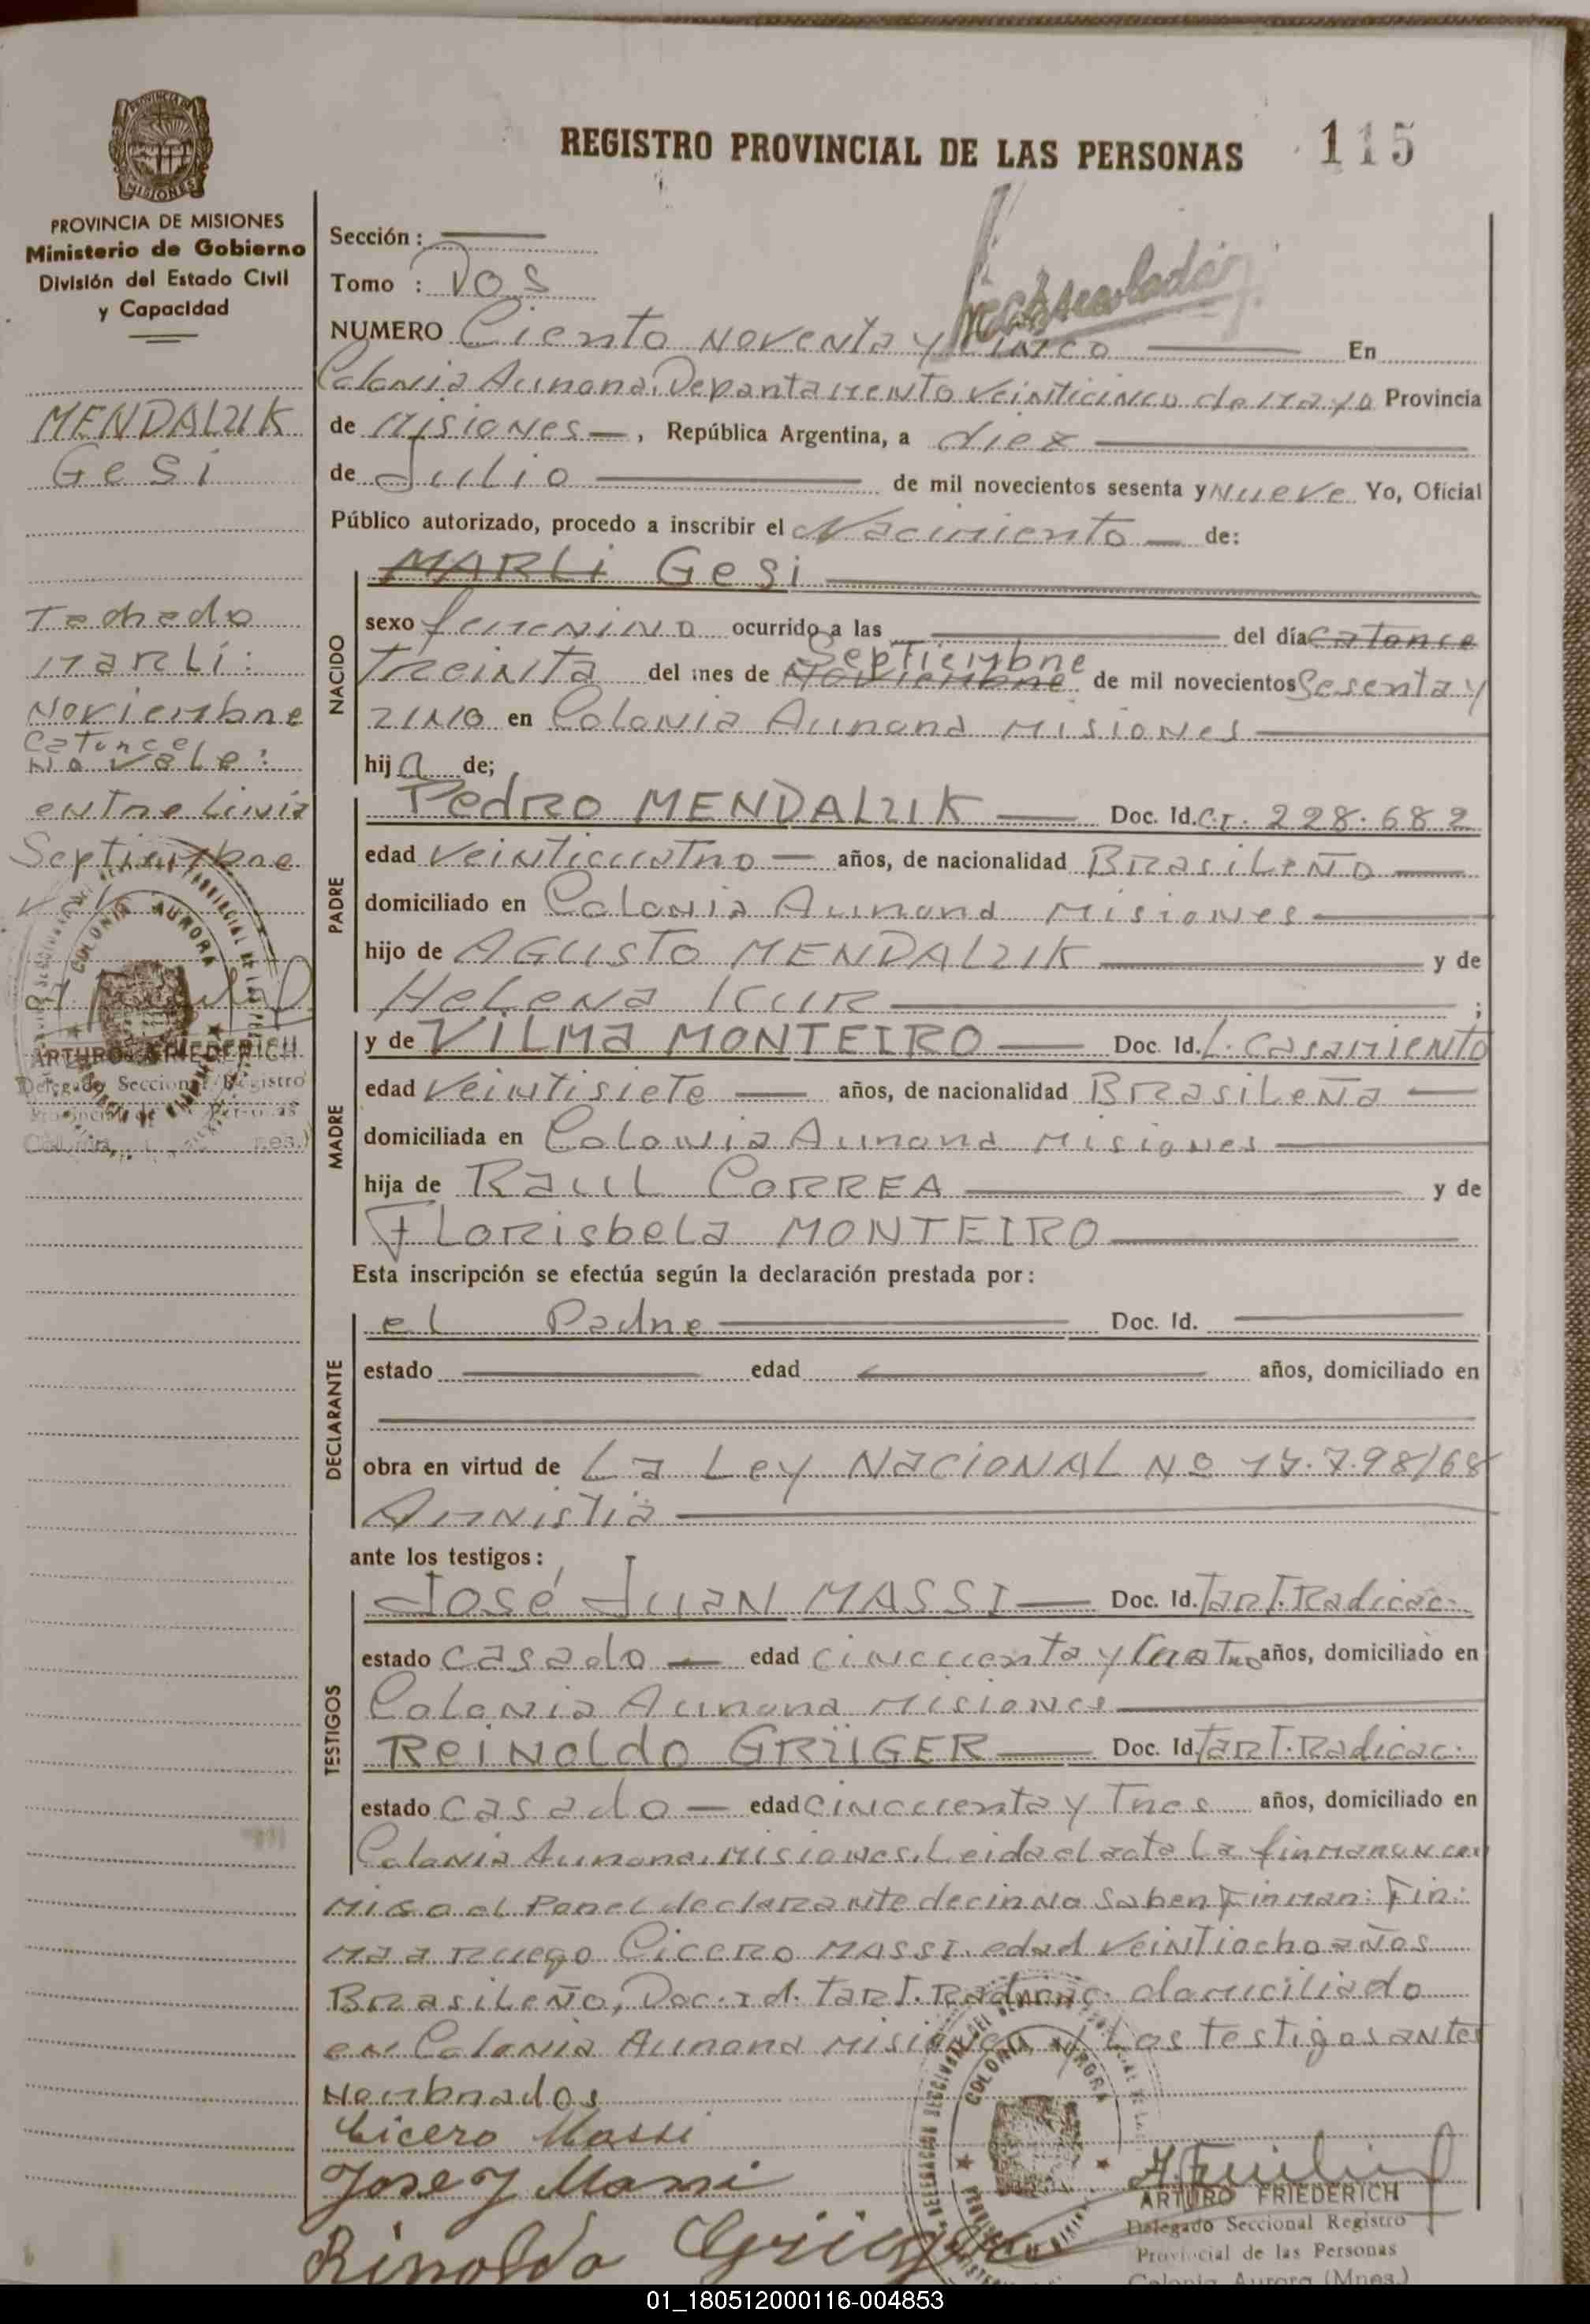 REGISTRO PROVINCIAL DE LAS PERSONAS 115
PROVINCIA DE MISIONES
Ministerio de Gobierno
División del Estado Civil
y Capacidad
MENDALUK
Gesi
Tachado
MARLi:
Noviembre
Catorce
No vale:
entre linia
Septiembre
COLONIA AURORA
ARTURO FRIEDERICH
Delegado Seccional Registro
Provincial de Personas
Sección: ——
Tomo : DOS
NUMERO Ciento Noventa y Cinco —— En
Colonia Aurora, Departamento Veinticinco de Mayo Provincia
de Misiones —, República Argentina, a diez ——
de Julio —— de mil novecientos sesenta y Nueve Yo, Oficial
Público autorizado, procedo a inscribir el Nacimiento — de:
NACIDO
MARLi Gesi ——
sexo femenino ocurrido a las —— del día Catorce
Septiembre
Treinta del mes de Noviembre de mil novecientos Sesenta y
uno en Colonia Aurora Misiones ——
hija de;
PADRE
Pedro MENDALUK —— Doc. Id. C.I. 228.682
edad Veinticuatro — años, de nacionalidad BRasiLeÑo ——
domiciliado en Colonia Aurora Misiones ——
hijo de AGUSTO MENDALUK —— y de
HeLeNa KUR —— ;
MADRE
y de ViLMa MONTEIRO —— Doc. Id. L. Casamiento
edad Veintisiete —— años, de nacionalidad BRasiLeÑa —
domiciliada en Colonia Aurora Misiones ——
hija de RauL CORREA —— y de
FLoRisbeLa MONTEIRO ——
Esta inscripción se efectúa según la declaración prestada por:
DECLARANTE
el Padre —— Doc. Id. ——
estado —— edad —— años, domiciliado en
obra en virtud de La Ley NacioNAL Nº 17.798/68
Amnistia ——
ante los testigos:
TESTIGOS
José Juan MASSI — Doc. Id. Tart. Radicac.
estado casado — edad cincuenta y Cuatro años, domiciliado en
Colonia Aurora Misiones ——
ReiNoldo GRÜGER —— Doc. Id Tart. Radicac.
estado casado — edad cincuenta y Tres años, domiciliado en
Colonia Aurora, Misiones. Leida el acta La firmaron con
migo el Panel declarante decir No Saben Firmar: Fir:
ma a ruego Cicero MASSI, edad Veintiocho años
BRasiLeÑo, Doc. Id. Tart. Radicac. domiciliado
en Colonia Aurora Misiones y Los testigos antes
Nombrados
Cicero Massi
Jose J Massi
Rinoldo Grüger
COLONIA AURORA
ARTURO FRIEDERICH
Delegado Seccional Registro
Provincial de las Personas
Colonia Aurora (Mnes.)
01_180512000116-004853